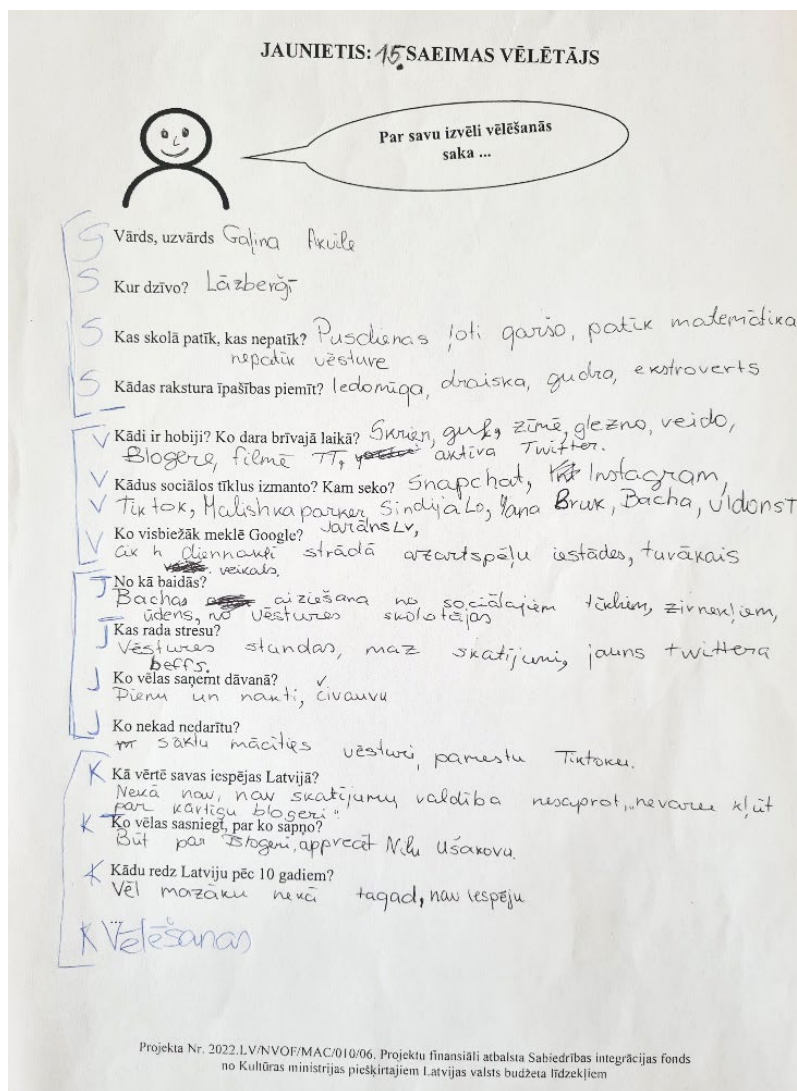 JAUNIETIS: 15. SAEIMAS VĒLĒTĀJS
Par savu izvēli vēlēšanās
saka ...
S Vārds, uzvārds Gaļina Akvile
S Kur dzīvo? Lāzberģī
S Kas skolā patīk, kas nepatīk? Pusdienas ļoti garšo, patīk matemātika
nepatīk vēsture
S Kādas rakstura īpašības piemīt? Iedomīga, draiska, gudra, ekstroverts
V Kādi ir hobiji? Ko dara brīvajā laikā? Skrien, guļ, zīmē, glezno, veido,
Blogere, filmē TT, aktīva Twitter.
V Kādus sociālos tīklus izmanto? Kam seko? Snapchat, Instagram,
V Tiktok, Malishka parker, Sindija Lo, Yana Bruk, Bacha, vldonst
V Ko visbiežāk meklē Google? JarānsLV,
cik h diennaktī strādā azartspēļu iestādes, tuvākais
veikals.
J No kā baidās?
Bachas aiziešana no sociālajiem tīkliem, zirnekļiem,
ūdens, no vēstures skolotājas
J Kas rada stresu?
Vēstures stundas, maz skatījumi, jauns twittera
beffs.
J Ko vēlas saņemt dāvanā?
Dienu un nakti, čivauvu
J Ko nekad nedarītu?
sāktu mācīties vēsturi, pamestu Tiktoku.
K Kā vērtē savas iespējas Latvijā?
Nekā nav, nav skatījumu, valdība nesaprot, "nevaru kļūt
par kārtīgu blogeri"
K Ko vēlas sasniegt, par ko sapņo?
Būt par Blogeri, apprecēt Nilu Ušakovu.
K Kādu redz Latviju pēc 10 gadiem?
Vēl mazāku nekā tagad, nav iespēju
K Vēlēšanas
Projekta Nr. 2022.LV/NVOF/MAC/010/06. Projektu finansiāli atbalsta Sabiedrības integrācijas fonds
no Kultūras ministrijas piešķirtajiem Latvijas valsts budžeta līdzekļiem